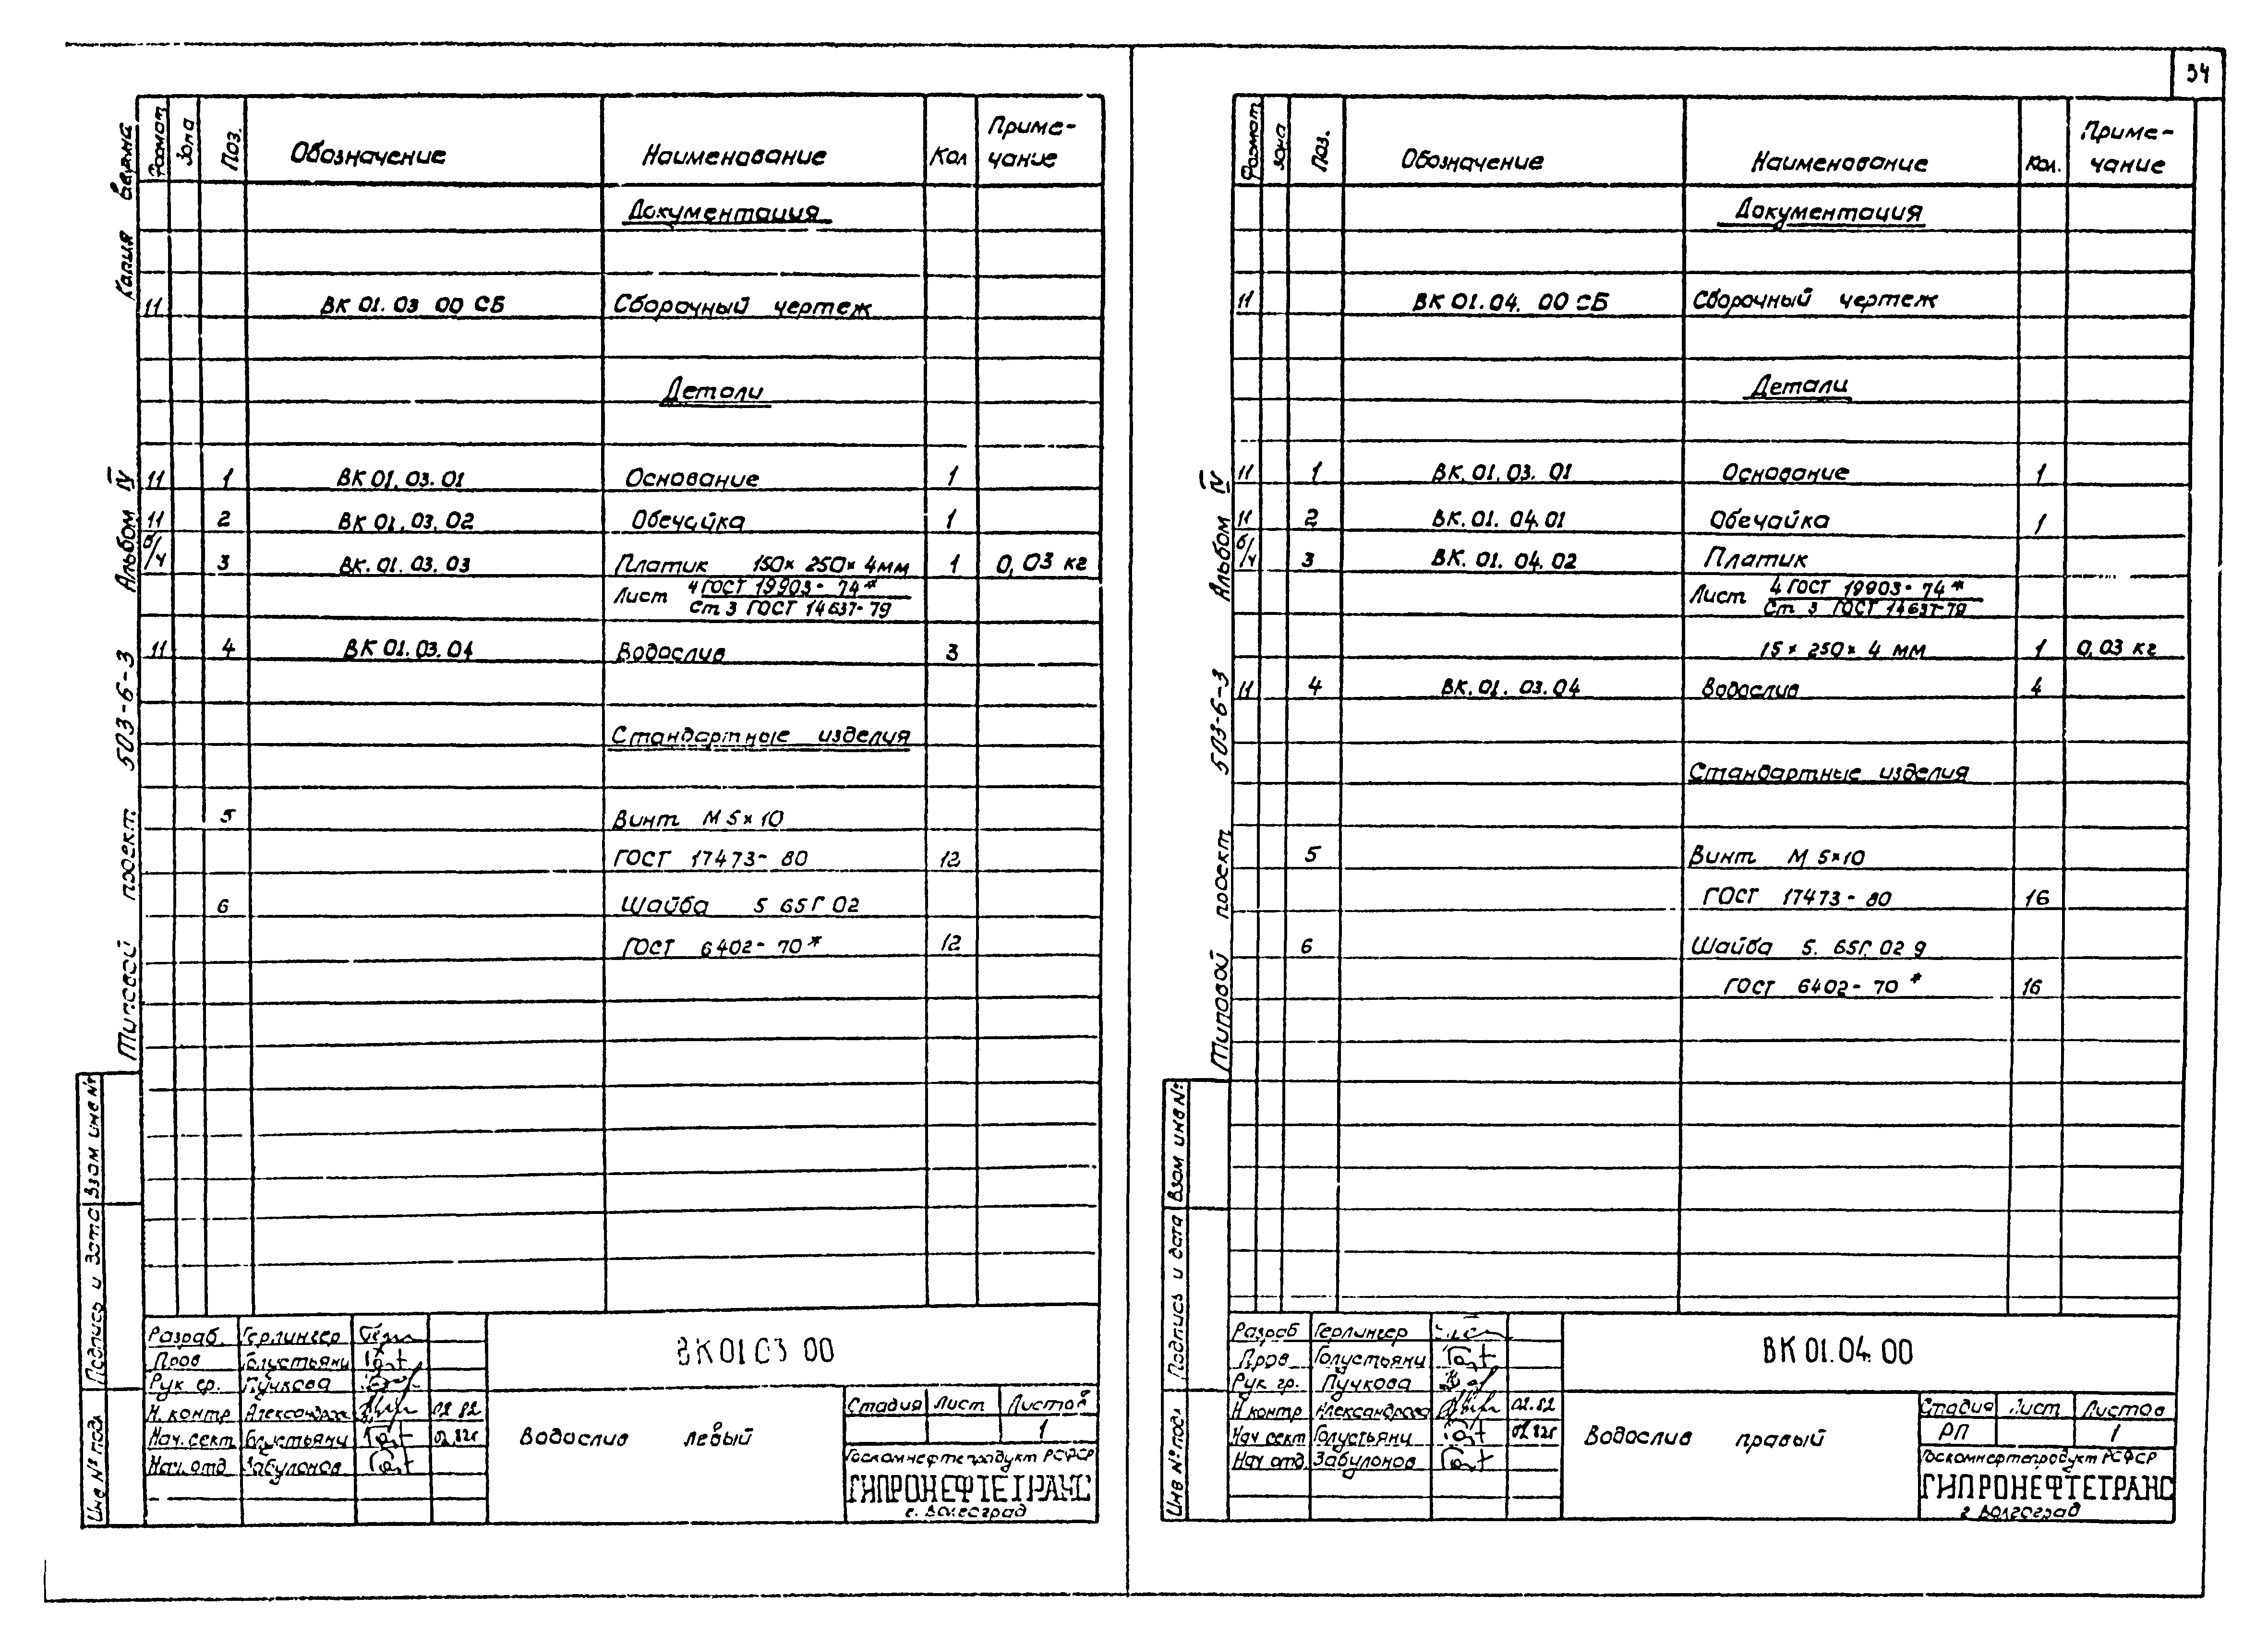 34
Копия верна
Альбом IV
Типовой проект 503-6-3
Формат Зона Поз. Обозначение Наименование Кол Приме-
чание
Документация
11 ВК 01. 03 00 СБ Сборочный чертеж
Детали
11 1 ВК 01. 03. 01 Основание 1
11 2 ВК 01. 03. 02 Обечайка 1
б/ч 3 ВК. 01. 03. 03 Платик 150× 250× 4мм 1 0,03 кг
Лист 4 ГОСТ 19903- 74*
Ст 3 ГОСТ 14637-79
11 4 ВК 01. 03. 04 Водослив 3
Стандартные изделия
5 Винт М 5×10
ГОСТ 17473- 80 12
6 Шайба 5 65Г 02
ГОСТ 6402- 70* 12
Взам инв №
Подпись и дата
Инв № подл
Разраб. Герлингер
Пров Голустьянц
Рук гр. Пучкова
Н. контр Александрова 02 82
Нач. сект Голустьянц 02 82г
Нач. отд Забулонов
ВК 01 03 00
Водослив левый
Стадия Лист Листов
1
Госкомнефтепродукт РСФСР
ГИПРОНЕФТЕТРАНС
г. Волгоград
Альбом IV
Типовой проект 503-6-3
Формат Зона Поз. Обозначение Наименование Кол. Приме-
чание
Документация
11 ВК 01. 04. 00 СБ Сборочный чертеж
Детали
11 1 ВК. 01. 03. 01 Основание 1
11 2 ВК. 01. 04. 01 Обечайка 1
б/ч 3 ВК. 01. 04. 02 Платик
Лист 4 ГОСТ 19903- 74*
Ст 3 ГОСТ 14637-79
15 × 250× 4 мм 1 0,03 кг
11 4 ВК. 01. 03. 04 Водослив 4
Стандартные изделия
5 Винт М 5×10
ГОСТ 17473- 80 16
6 Шайба 5. 65Г. 02 9
ГОСТ 6402- 70* 16
Взам инв №
Подпись и дата
Инв № подл
Разраб Герлингер
Пров Голустьянц
Рук гр. Пучкова
Н контр Александрова 02.82
Нач сект Голустьянц 02 82г
Нач отд. Забулонов
ВК 01. 04. 00
Водослив правый
Стадия Лист Листов
РП 1
Госкомнефтепродукт РСФСР
ГИПРОНЕФТЕТРАНС
г Волгоград